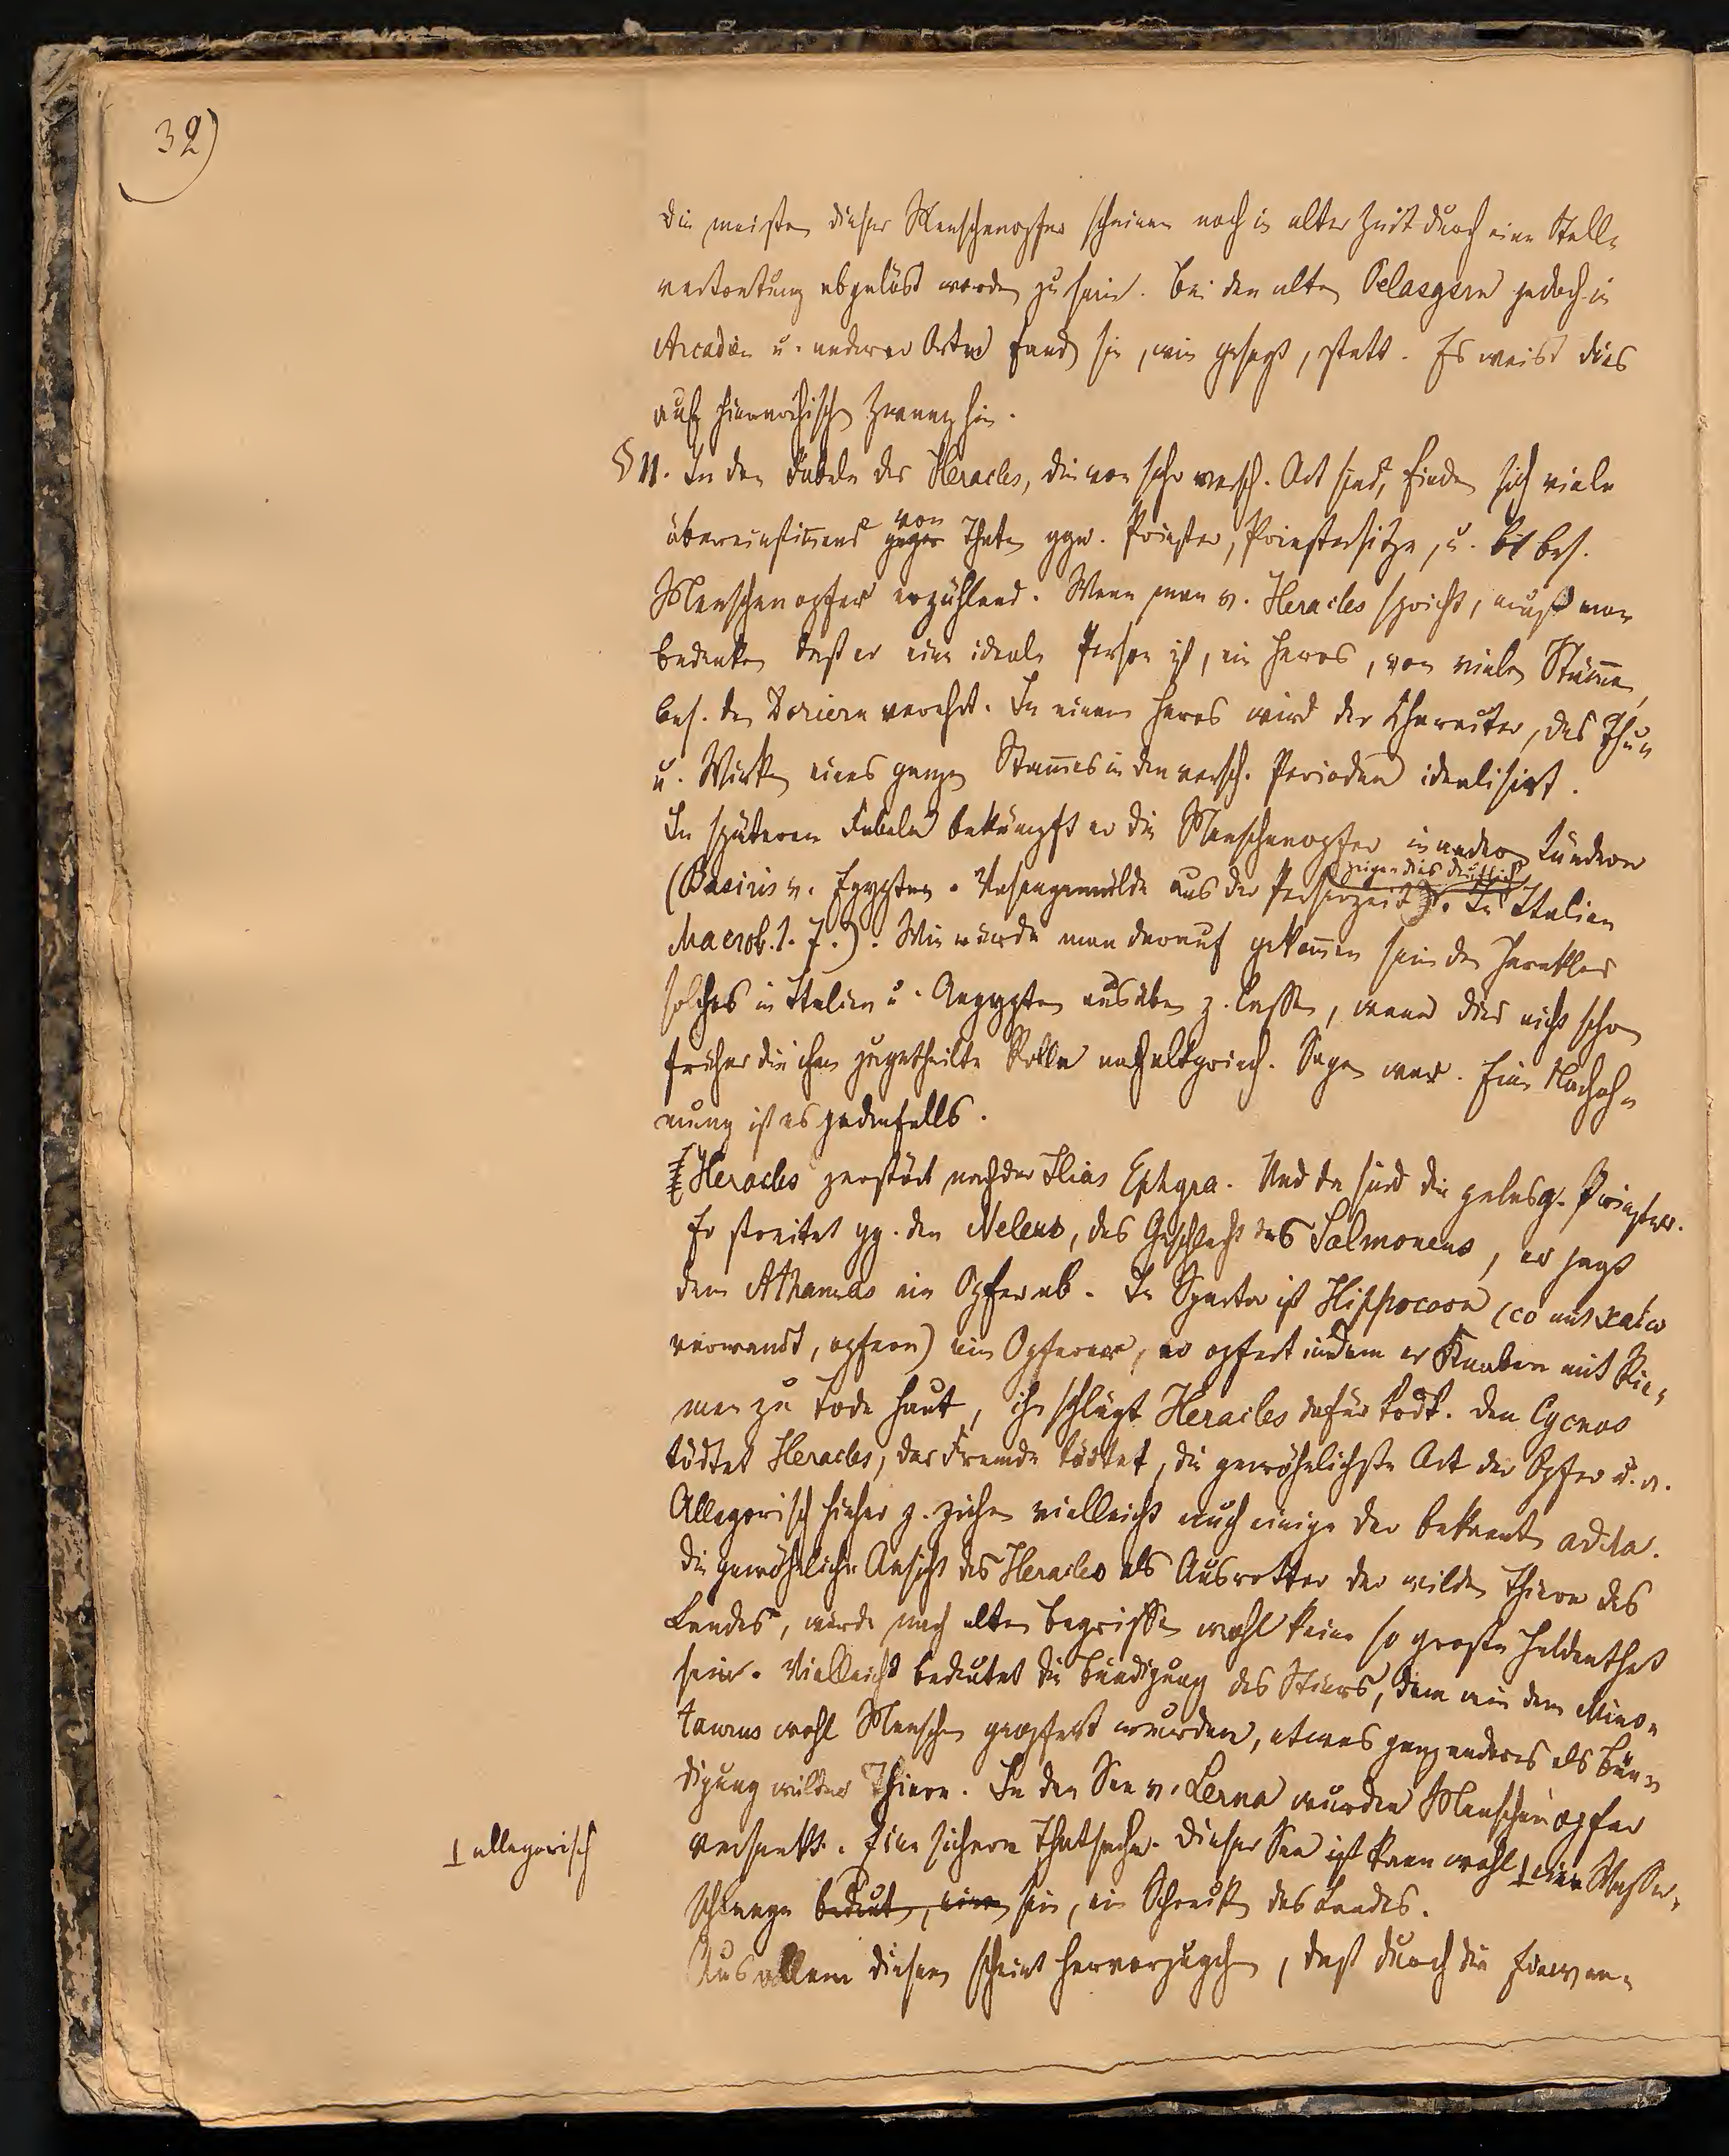 32)
Die meisten dieser Menschenopfer scheinen noch in alter Zeit durch eine Stell-
vertretung abgelöst worden zu sein. Bei den alten Pelasgern jedoch in
Arcadien u. anderer Orten fand sie, wie gesagt, statt. Es weist dies
auf hierarchischen Zwang hin.
§ 11. In den Fabeln des Heracles, die von sehr versch. Art sind, finden sich viele
von
übereinstimmend gegen Thaten ggn. Priester, Priestersitze, u. bes.
Menschenopfer erzählend. Wenn man v. Heracles spricht, muß man
bedenken daß er eine ideale Person ist, ein Heros, von vielen Stämmen,
bes. den Doriern verehrt. In einem Heros wird der Character, das Thun
u. Wirken eines ganzen Stammes in den versch. Perioden idealisirt.
In späteren Fabeln bekämpft er die Menschenopfer in andern Ländern
zeigen dies deutlich
(Busiris v. Egypten. Vasengemälde aus der Perserzeit). In Italien
Macrob. 1. 7.). Wie würde man darauf gekommen sein den Herakles
solches in Italien u. Aegypten ausüben z. lassen, wenn dies nicht schon
früher die ihm zugetheilte Rolle nach altgriech. Sagen war. Eine Nachah-
mung ist es jedenfalls.
Heracles zerstört nach der Ilias Ephyra. Und da sind die pelasg. Priester.
Er streitet gg. den Neleus, das Geschlecht des Salmoneus, er jagt
dem Athamas ein Opfer ab. In Sparta ist Hippocoon (co mit καίω
verwandt, opfern) ein Opferer, er opfert indem er Knaben mit Rie-
men zu Tode haut, ihn schlägt Heracles dafür todt. Den Cycnos
tödtet Heracles, der Fremde tödtet, die gewöhnlichste Art der Opfer u. a.
Allegorisch hieher z. ziehen vielleicht auch einige der bekannten ἆθλα.
Die gewöhnliche Ansicht des Heracles als Ausrotter der wilden Thiere des
Landes, würde nach alten Begriffen wohl keine so große Heldenthat
sein. Vielleicht bedeutet die Bändigung des Stiers, dem wie dem Mino-
taurus wohl Menschen geopfert wurden, etwas ganz anderes als Bän-
digung wilder Thiere. In den See v. Lerna wurden Menschenopfer
versenkt. Eine sichere Thatsache. Dieser See ist kann wohl ⊥ eine Wasser-
⊥ allegorisch
schlange bedeuten, eine sein, ein Schrecken des Landes.
Aus allem diesem scheint hervorzugehen, daß durch die Einwan-